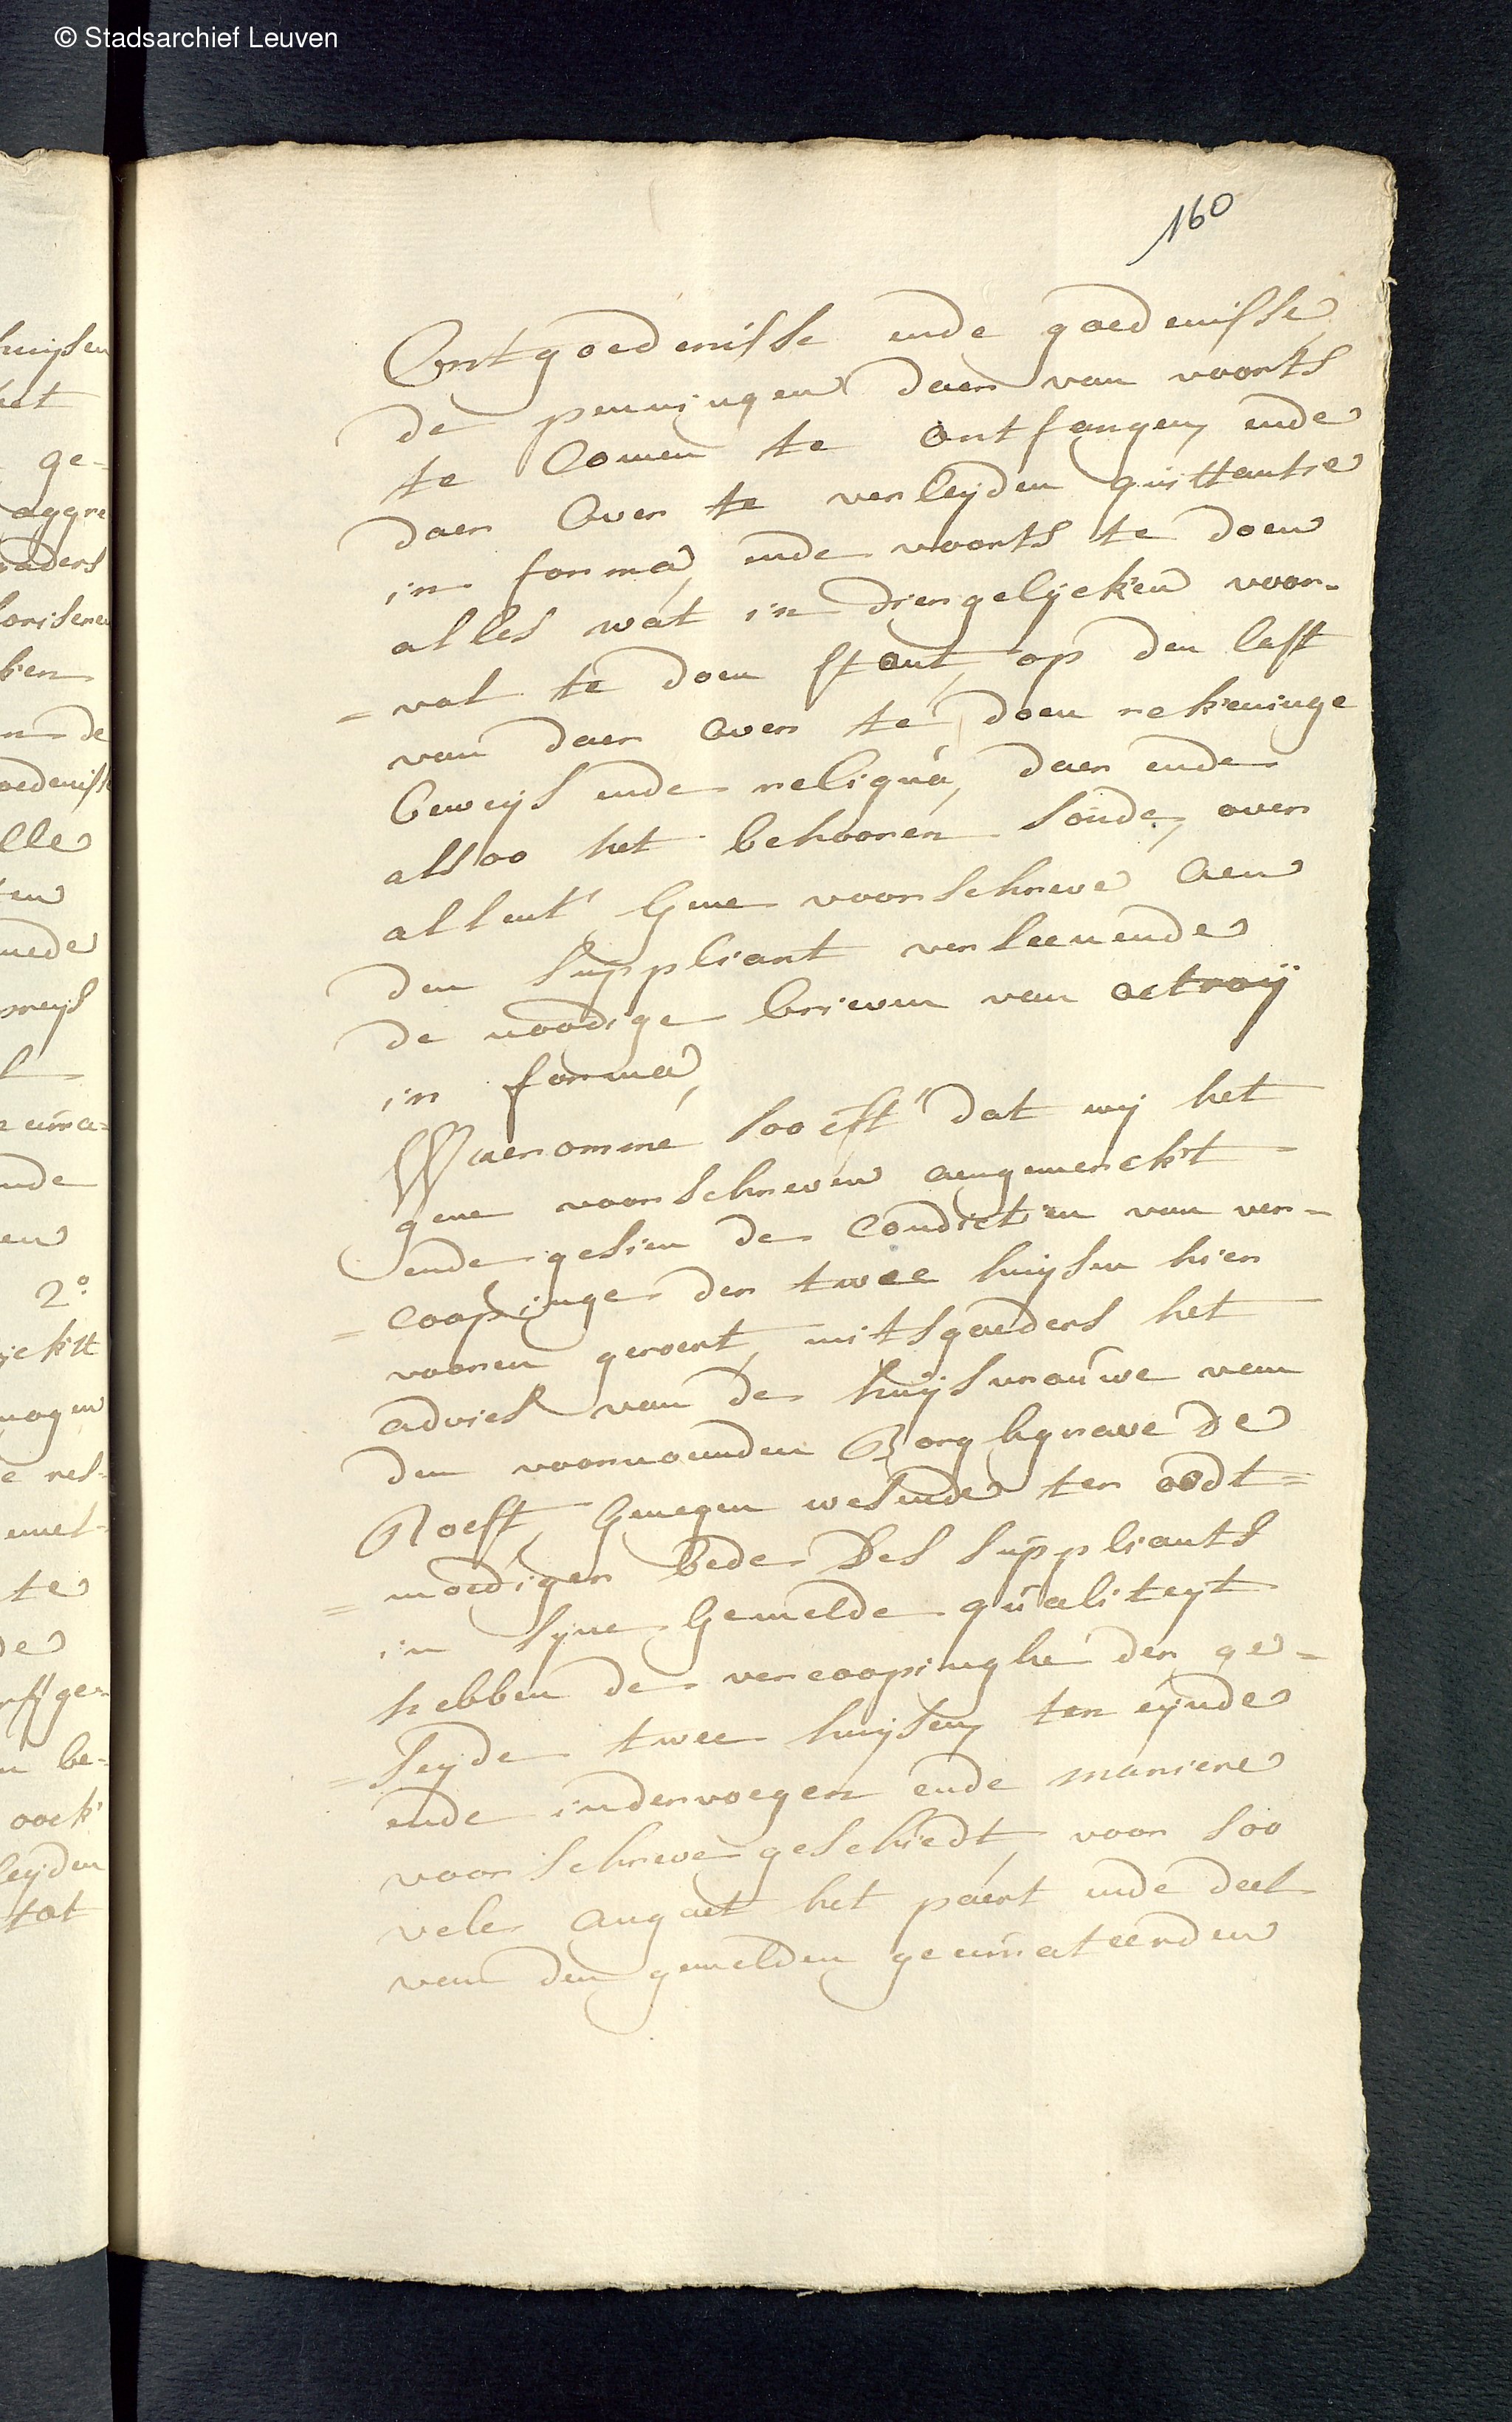 © Stadsarchief Leuven
160
Ontgoedenisse ende goedenisse
de penningen daer van voorts
te comen te ontfangen, ende
daer over te verleyden quittantie
in forma, ende voorts te doen
alles wat in diergelycken voor-
= val te doen staat, op den last
van daer over te doen rekeninge
bewijs ende reliqua, daer ende
alsoo het behooren soude, over
allent' gene voorschreve aen
den suppliant verleenende
de noodige brieven van octroij
in forma,
Waeromme soo ist dat wij het
gene voorschreven aengemerckt
ende gesien de conditien van ver-
= coopinge der twee huijsen hier
vooren geroert, mitsgaeders het
advies van de huijsvrouwe van
den voornoemden Borghgrave de
Roest, genegen wesende ter oodt=
= moediger bede des suppliants
in syne gemelde qualiteyt
hebben de vercoopinghe der ge-
= seyde twee huysen, ten eynde
ende indervoegen ende maniere
voorschreve geschiedt, voor soo
vele aengaet het paert ende deel
van den gemelden geëmateerden
huijsen
het
ge=
aggre
raders
ben
de
oedenisse
lle
en
mede
preijs
ende
en
2º
te
de
be=
oock
leyden
tot